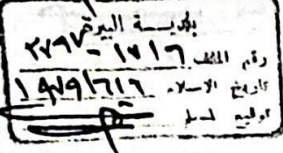 بلديـــة البيرة
رقم الملف ١٧١٦ - ٢٧٩٧
تاريخ الاستلام ١٩٧٩/٦/٦
توقيع المستلم